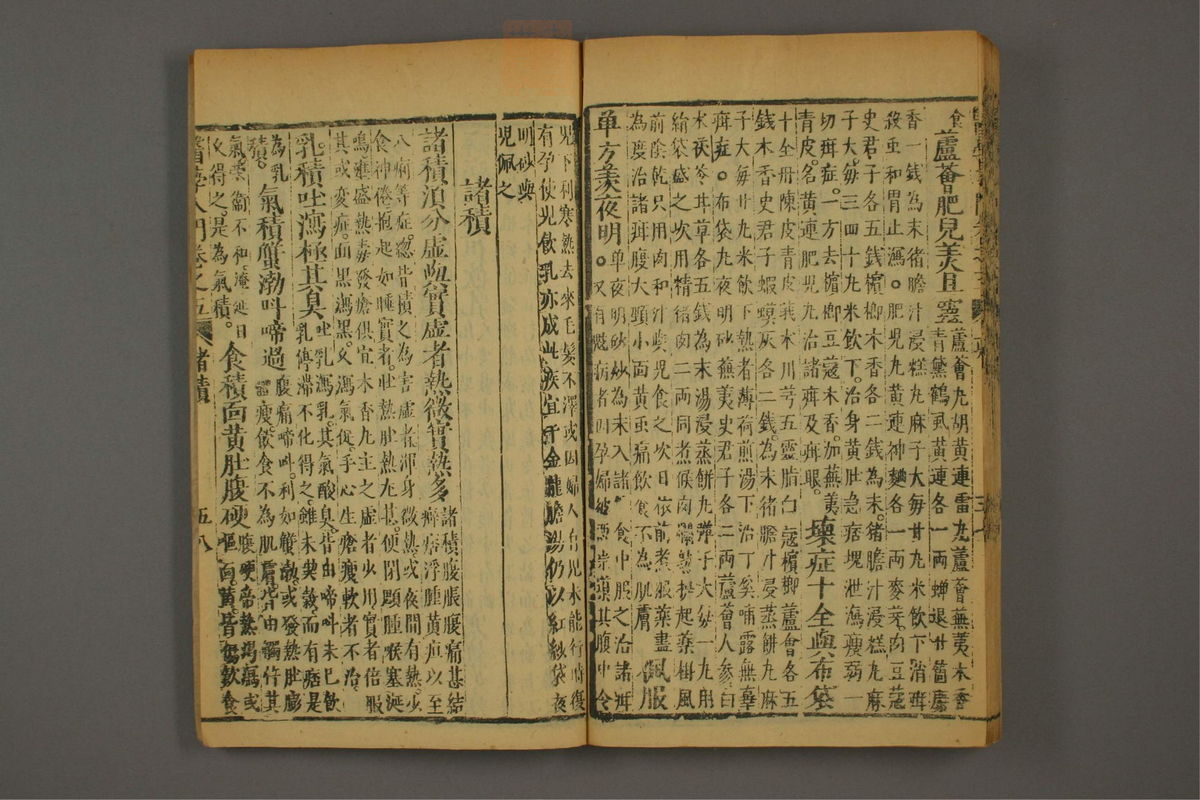 食蘆薈肥兒美且靈蘆薈丸胡黃連雷丸蘆薈蕪荑木香青黛鶴虱黃連各一兩蟬退廿箇麝
香一錢為末猪膽汁浸糕丸麻子大每廿丸米飲下消疳
殺虫和胃止瀉。肥兒丸黃連神麯各一兩麥芽肉豆蔻
史君子各五錢檳榔木香各二錢為末猪膽汁浸糕丸麻
子大每三四十丸米飲下治身黃肚急痞塊泄瀉瘦弱一
切疳症一方去檳榔豆蔻木香加蕪荑
青皮名黃連肥兒丸治諸疳及疳眼。壞症十全與布袋
十全丹陳皮青皮莪朮川芎五靈脂白蔻檳榔蘆薈各五
錢木香史君子蝦蟆灰各二錢為末猪膽汁浸蒸餅丸麻
子大每廿丸米飲下熱者薄荷煎湯下治丁奚哺露無辜
疳症。布袋丸夜明砂蕪荑史君子各二兩蘆薈人參白
朮茯苓甘草各五錢為末湯浸蒸餅丸彈子大每一丸用
絹袋盛之次用精猪肉二兩同煮候肉爛熟提起藥掛風
前陰乾只用肉和汁與兒食之次日依前煮服藥盡
為度治諸疳腹大頸小面黃虫痛飲食不為肌膚佩服
單方羨夜明。單夜明砂炒為末入諸食中服之治諸疳
又有魃病者因孕婦被惡祟導其腹中令
兒下利寒熱去來毛髮不澤或因婦人有兒未能行時復
有孕使兒飲乳亦成此疾宜千金龍膽湯仍以紅紗袋夜
明砂與
兒佩之
諸積
諸積須分虛與實虛者熱微實熱多諸積腹脹腹痛甚結癖痞浮腫黃疸以至
八痢等症忽皆積之為害虛者渾身微熱或夜間有熱少
食神倦抱起如睡實者肚熱尤甚便閉顋腫喉塞涎
鳴雍盛熱毒發瘡俱宜木香丸主之虛者少用實者倍服
其或變症面黑瀉黑久瀉氣促手心生瘡瘦軟者不治
乳積吐瀉極其臭吐乳瀉乳其氣酸臭皆由啼叫未已飲乳停滯不化得之雖未喫穀而有痞是
為乳積。氣積蟹渤叫啼過腹痛啼叫利如蟹渤或發熱肚膨瘦飲食不為肌膚皆由觸忤其
氣榮衛不和淹延日
久得之是為氣積。食積面黃肚腹硬面黃皆傷飲食
醫學入門卷之五 諸積 五八